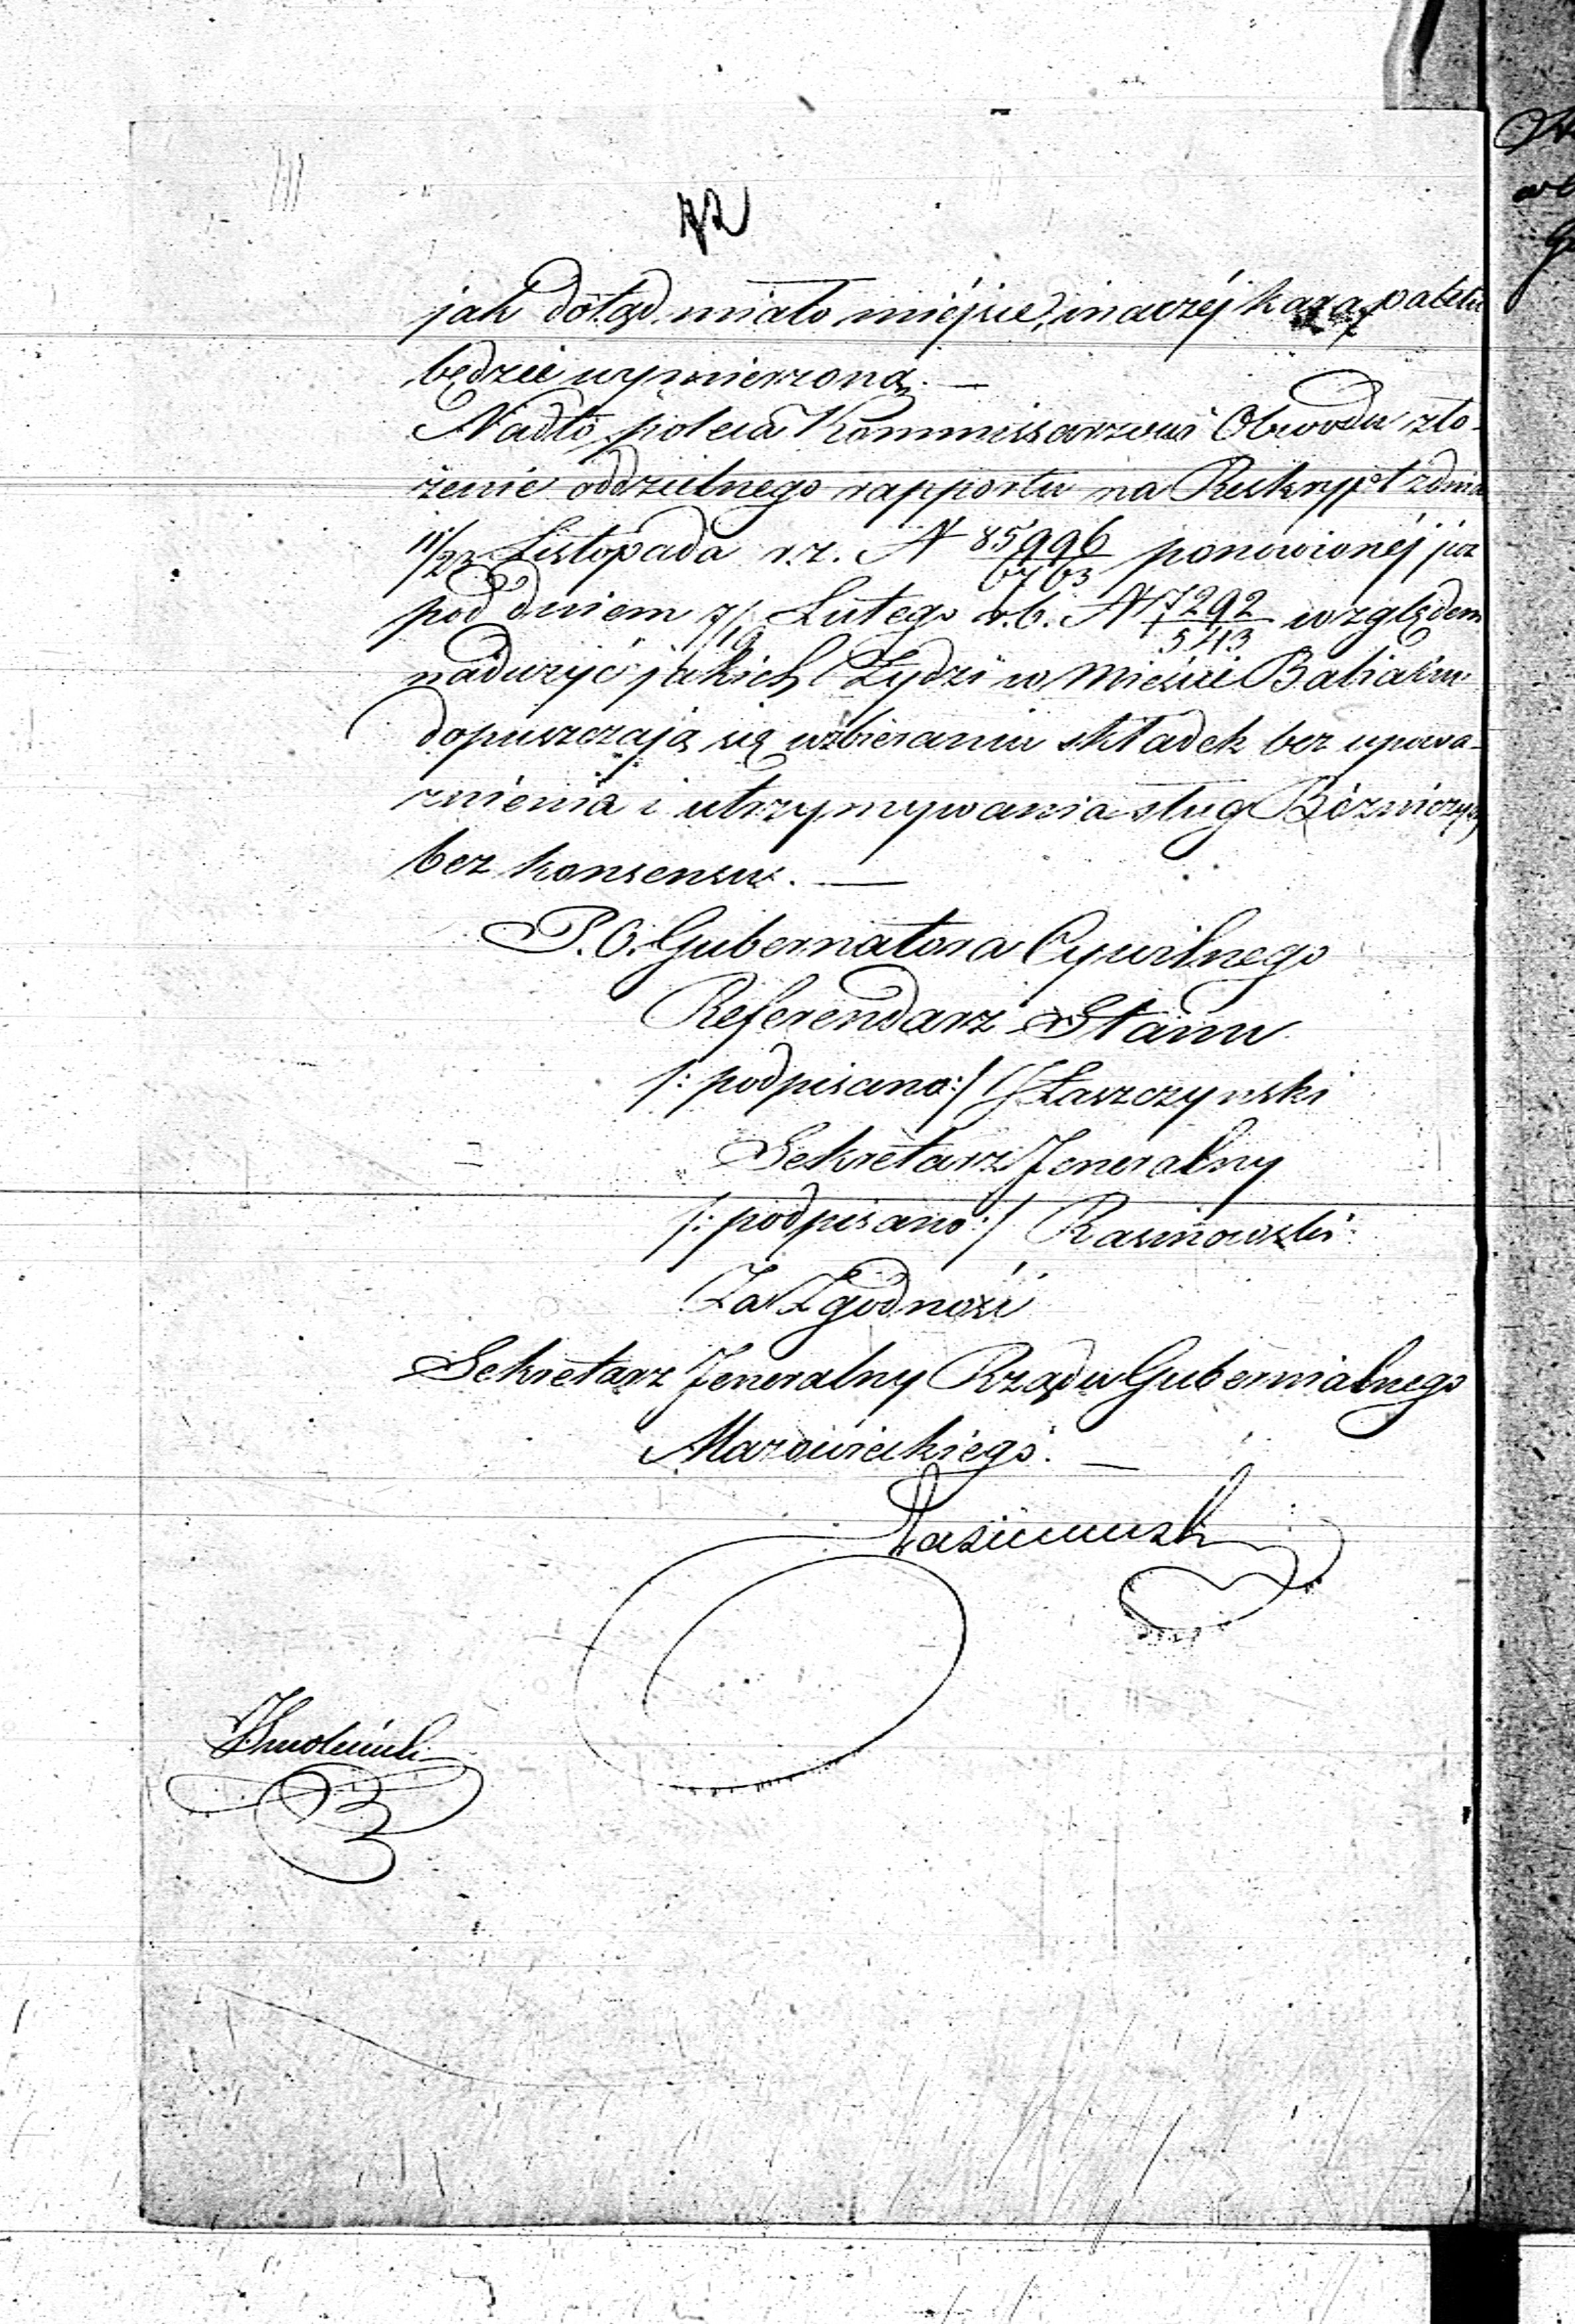 jak dotąd miało miéjsce, inaczéj kara
będzie wymierzoną. —
Nadto poleca Kommissarzowi Obwodu zło-
żenie oddzielnego rapportu na Reskrypt z dnia
11/23 Listopada r.z. N 85996/6763 ponowionéj
pod dniem 7/19 Lutego r.b. N 7292/543 względem
nadużyć jakich Żydzi w Mieście Babiaku
dopuszczają się w zbieraniu składek bez upowa-
żnienia i utrzymywania sług Bóźniczych
bez konsensu. —
P.O. Gubernatora Cywilnego
Referendarz Stanu
/: podpisano :/ Łaszczynski
Sekretarz Jeneralny
/: podpisano :/
Za Zgodność
Sekretarz Jeneralny Rządu Gubernialnego
Mazowieckiego. —